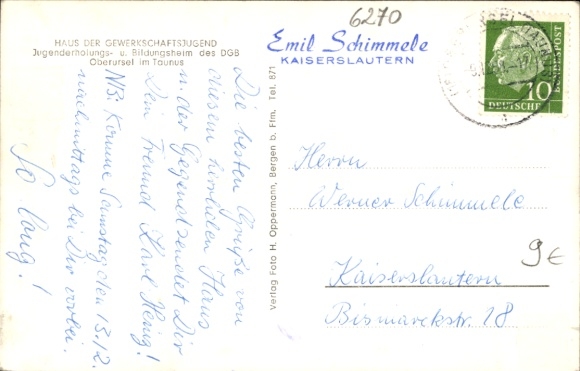 HAUS DER GEWERKSCHAFTSJUGEND
Jugenderholungs- u. Bildungsheim des DGB
Oberursel im Taunus
Die besten Grüße von
diesem herrlichen Haus
u. der Gegend sendet Dir
Dein Freund Karl Heinz!
NB: Komme Samstag den 13.12.
nachmittags bei Dir vorbei.
So long!
Verlag Foto H. Oppermann, Bergen b. Ffm. Tel. 871
6270
Emil Schimmele
KAISERSLAUTERN
10
DEUTSCHE
BUNDESPOST
Herrn
Werner Schimmele
9€
Kaiserslautern
Bismarckstr. 28